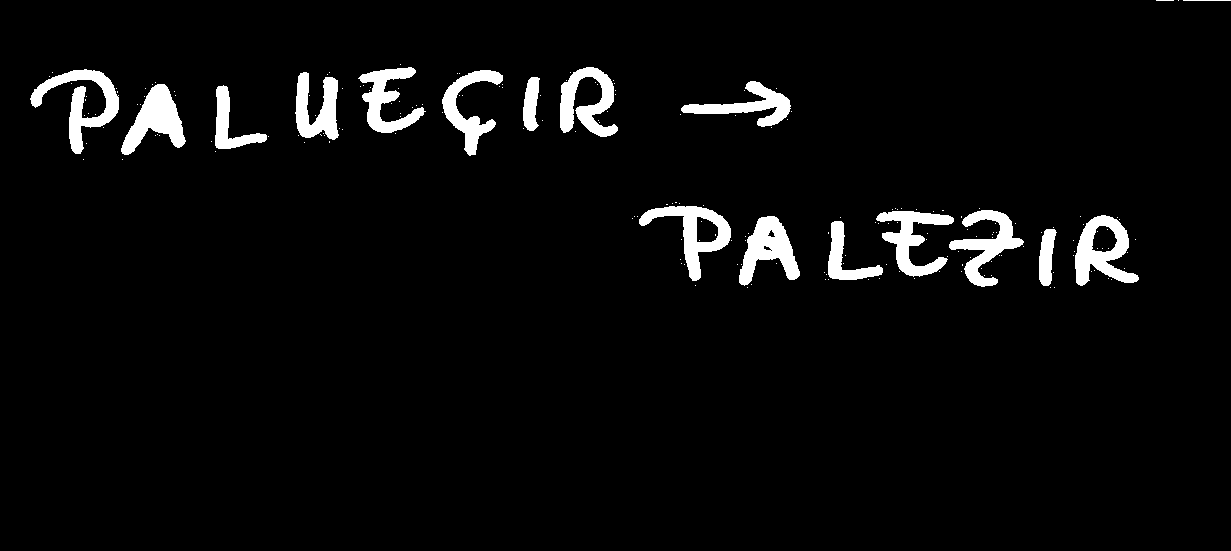 PALUEÇIR →
PALEZIR